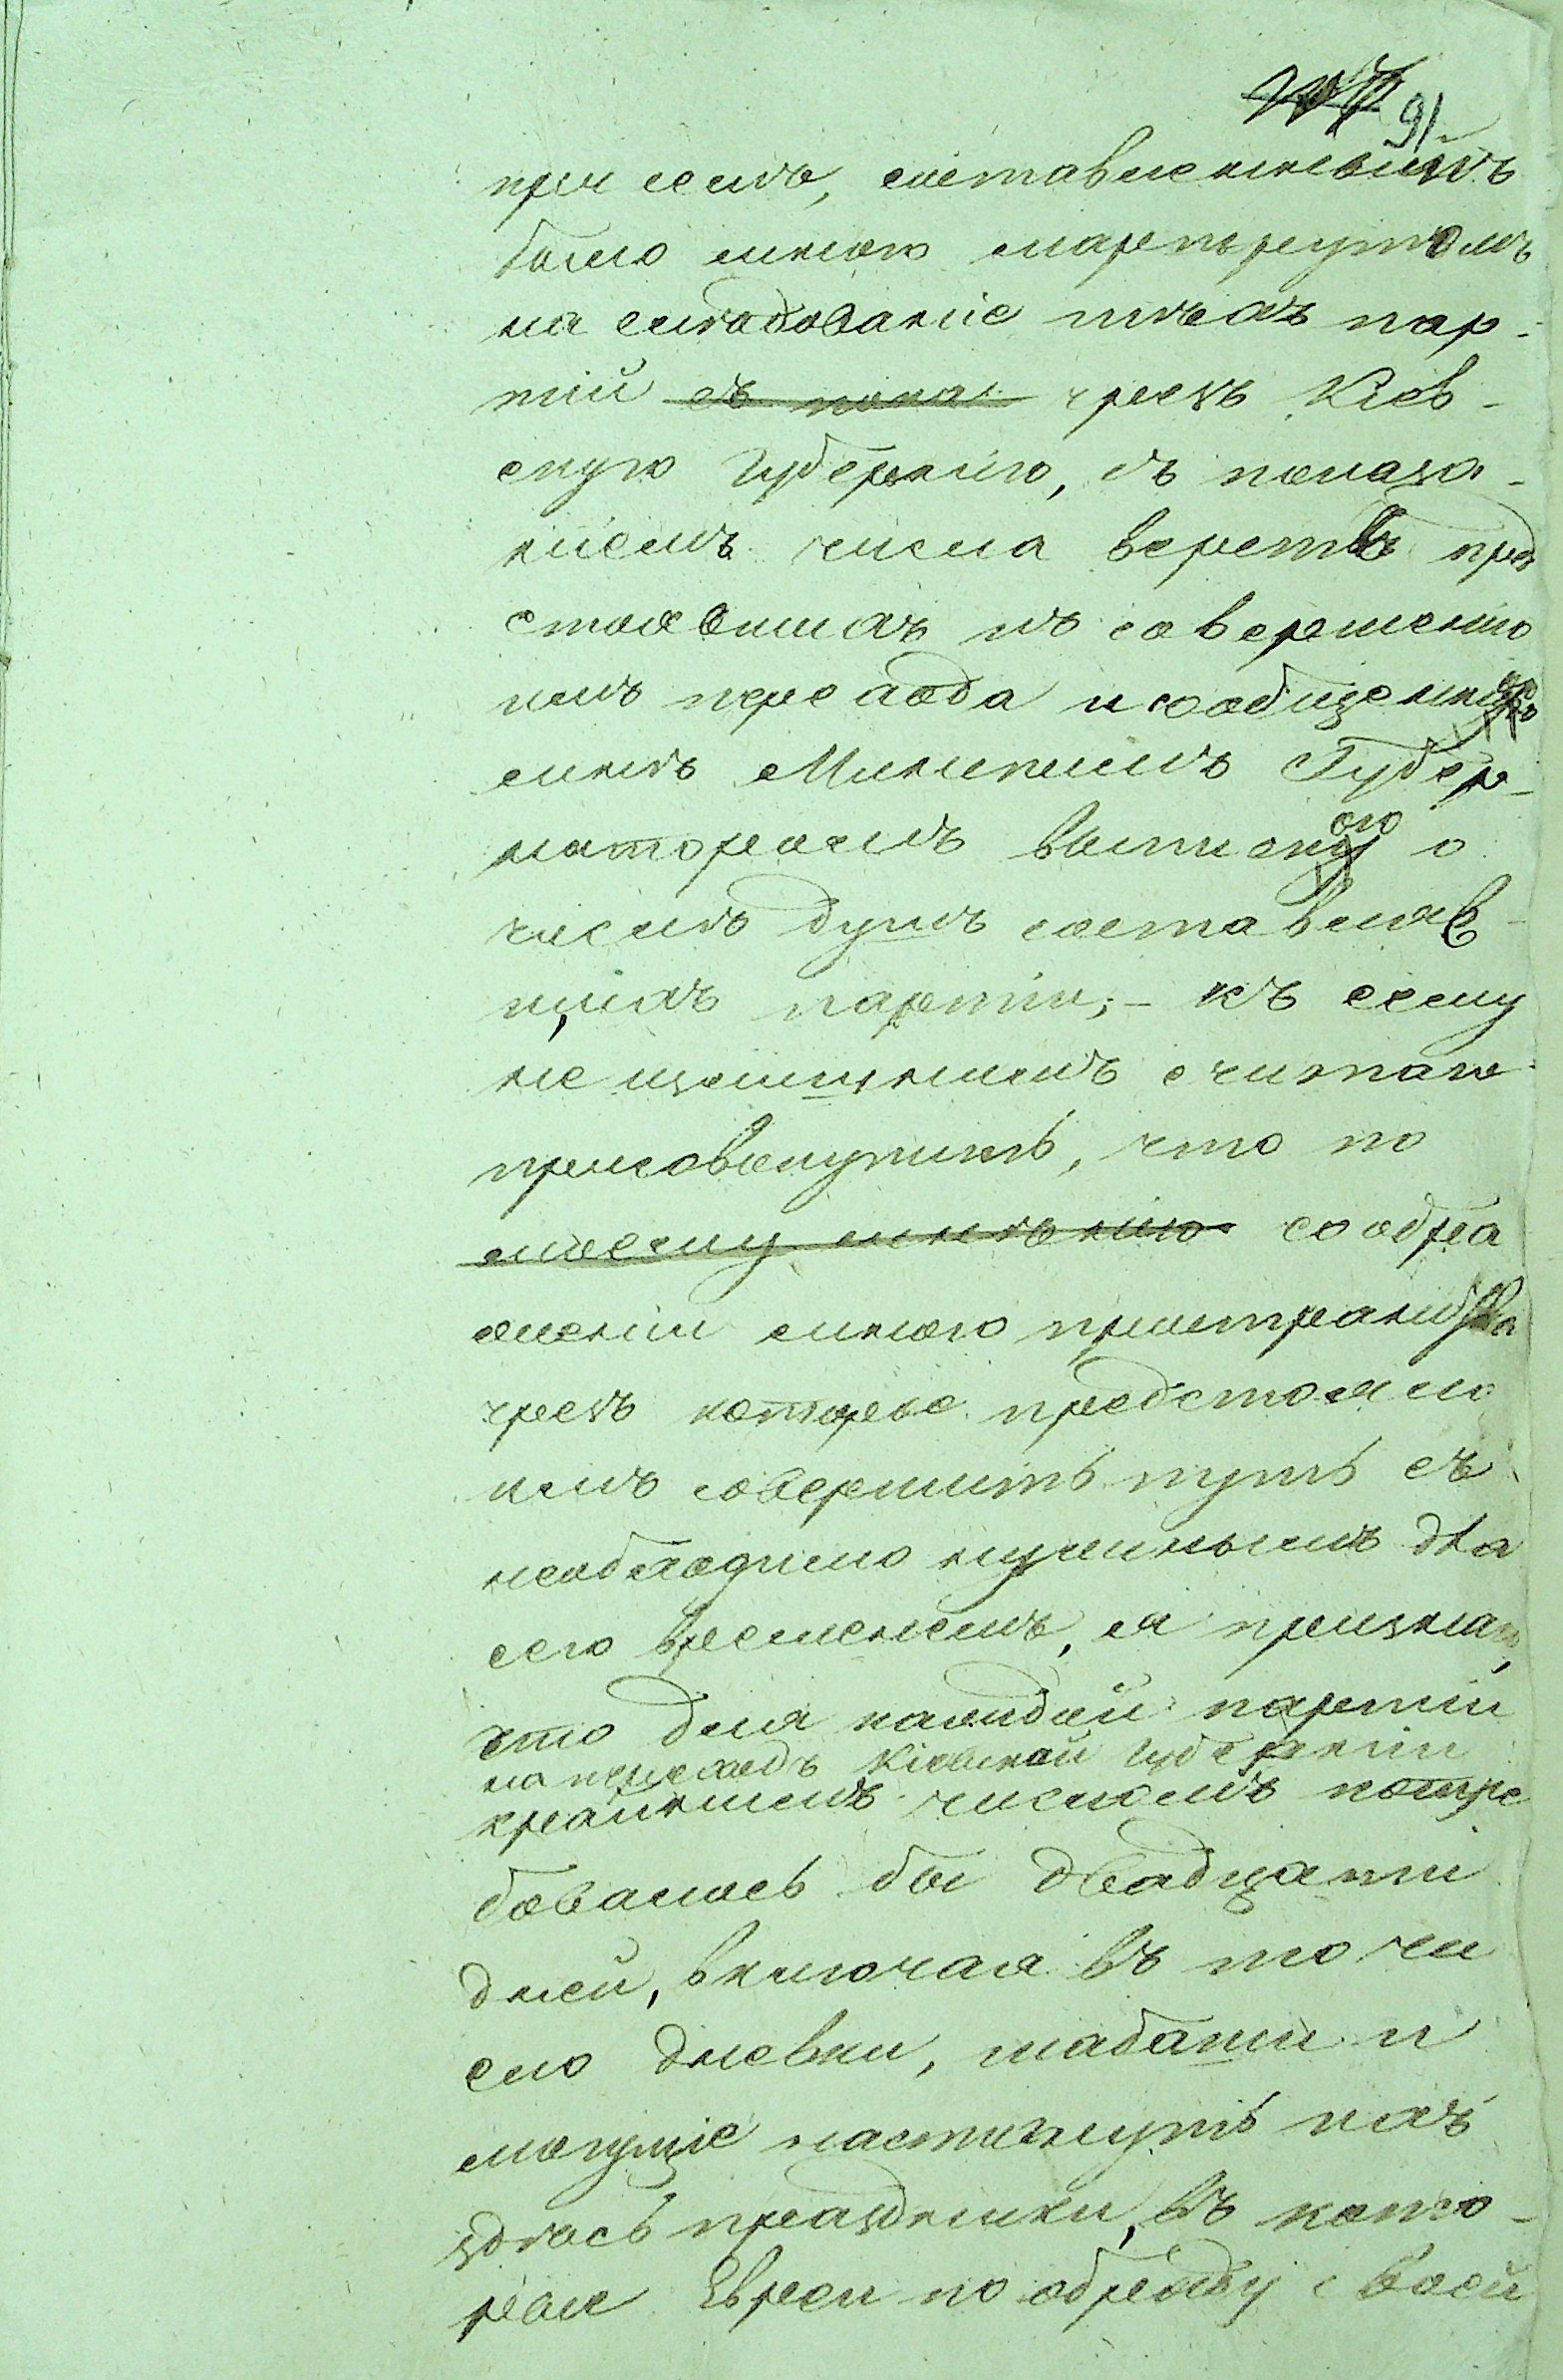 91
при семъ, составленнымъ
было мною маршрутомъ
на слѣдованіе тѣхъ пар-
тій ~~съ показ~~ чрезъ Кіев-
скую Губернію, съ показа-
ніемъ числа верстъ пред
стоявшихъ къ совершенію
имъ перехода и сообщенною
мнѣ Минскимъ Губер-
наторомъ выпискою о
числѣ душъ составляв-
шихъ партіи;- къ сему
не излишнимъ считаю
присовокупить, что по
~~моему мнѣнію~~ сообра
женіи мною пространства
чрезъ которое предстояло
имъ совершить путь съ
необходимо нужнымъ для
сего временемъ, я призналъ,
что для каждой партіи
на переходъ Кіевской Губерніи
крайнимъ числомъ потре
бовалось бы двадцати
дней, включая въ то чи
сло дневки, шабаши и
могущіе настигнуть ихъ
здѣсь праздники, въ кото-
рые Евреи по обряду своей